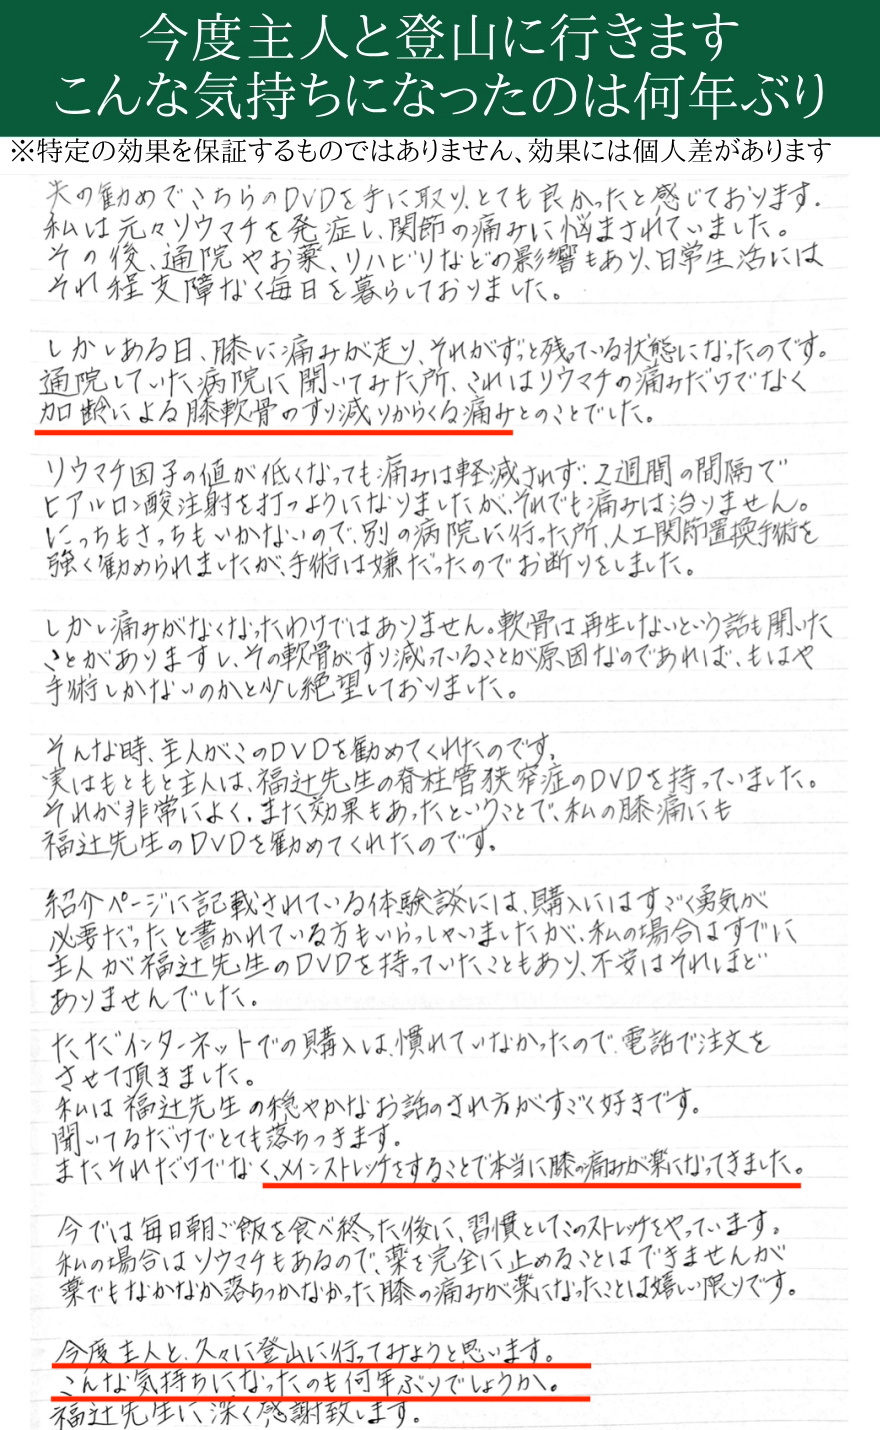 今度主人と登山に行きます
こんな気持ちになったのは何年ぶり
※特定の効果を保証するものではありません、効果には個人差があります
夫の勧めでこちらのDVDを手に取り、とても良かったと感じております。
私は元々リウマチを発症し、関節の痛みに悩まされていました。
その後、通院やお薬、リハビリなどの影響もあり、日常生活には
それ程支障なく毎日を暮らしておりました。
しかしある日、膝に痛みが走り、それがずっと残っている状態になったのです。
通院していた病院に聞いてみた所、これはリウマチの痛みだけでなく
加齢による膝軟骨のすり減りからくる痛みとのことでした。
リウマチ因子の値が低くなっても痛みは軽減されず、2週間の間隔で
ヒアルロン酸注射を打つようになりましたが、それでも痛みは治りません。
にっちもさっちもいかないので、別の病院に行った所、人工関節置換手術を
強く勧められましたが、手術は嫌だったのでお断りをしました。
しかし痛みがなくなったわけではありません。軟骨は再生しないという話も聞いた
ことがありますし、その軟骨がすり減っていることが原因なのであれば、もはや
手術しかないのかと少し絶望しておりました。
そんな時、主人がこのDVDを勧めてくれたのです。
実はもともと主人は、福辻先生の脊柱管狭窄症のDVDを持っていました。
それが非常によく、また効果もあったということで、私の膝痛にも
福辻先生のDVDを勧めてくれたのです。
紹介ページに記載されている体験談には、購入にはすごく勇気が
必要だったと書かれている方もいらっしゃいましたが、私の場合はすでに
主人が福辻先生のDVDを持っていたこともあり、不安はそれほど
ありませんでした。
ただインターネットでの購入は、慣れていなかったので、電話で注文を
させて頂きました。
私は福辻先生の穏やかなお話のされ方がすごく好きです。
聞いてるだけでとても落ちつきます。
またそれだけでなく、メインストレッチをすることで本当に膝の痛みが楽になってきました。
今では毎日朝ご飯を食べ終った後に、習慣としてこのストレッチをやっています。
私の場合はリウマチもあるので、薬を完全に止めることはできませんが
薬でもなかなか落ちつかなかった膝の痛みが楽になったことは嬉しい限りです。
今度主人と、久々に登山に行ってみようと思います。
こんな気持ちになったのも何年ぶりでしょうか。
福辻先生に深く感謝致します。